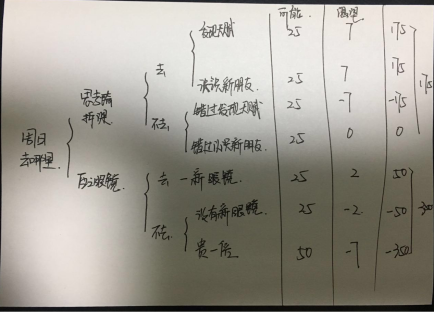 可能 愿望
发现天赋 25 7 175
去
认识新朋友 25 7 175
错过发现天赋 25 -7 -175
不去
错过认识新朋友 25 0 0
175
周日
去哪里
配眼镜 去 新眼镜 25 2 50
没有新眼镜 25 -2 -50
不去
300
贵一倍 50 -7 -350